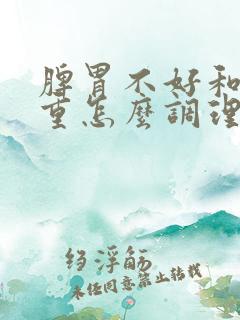 脾胃不好和
重怎麼調理
绉浮觞
未经同意禁止转载